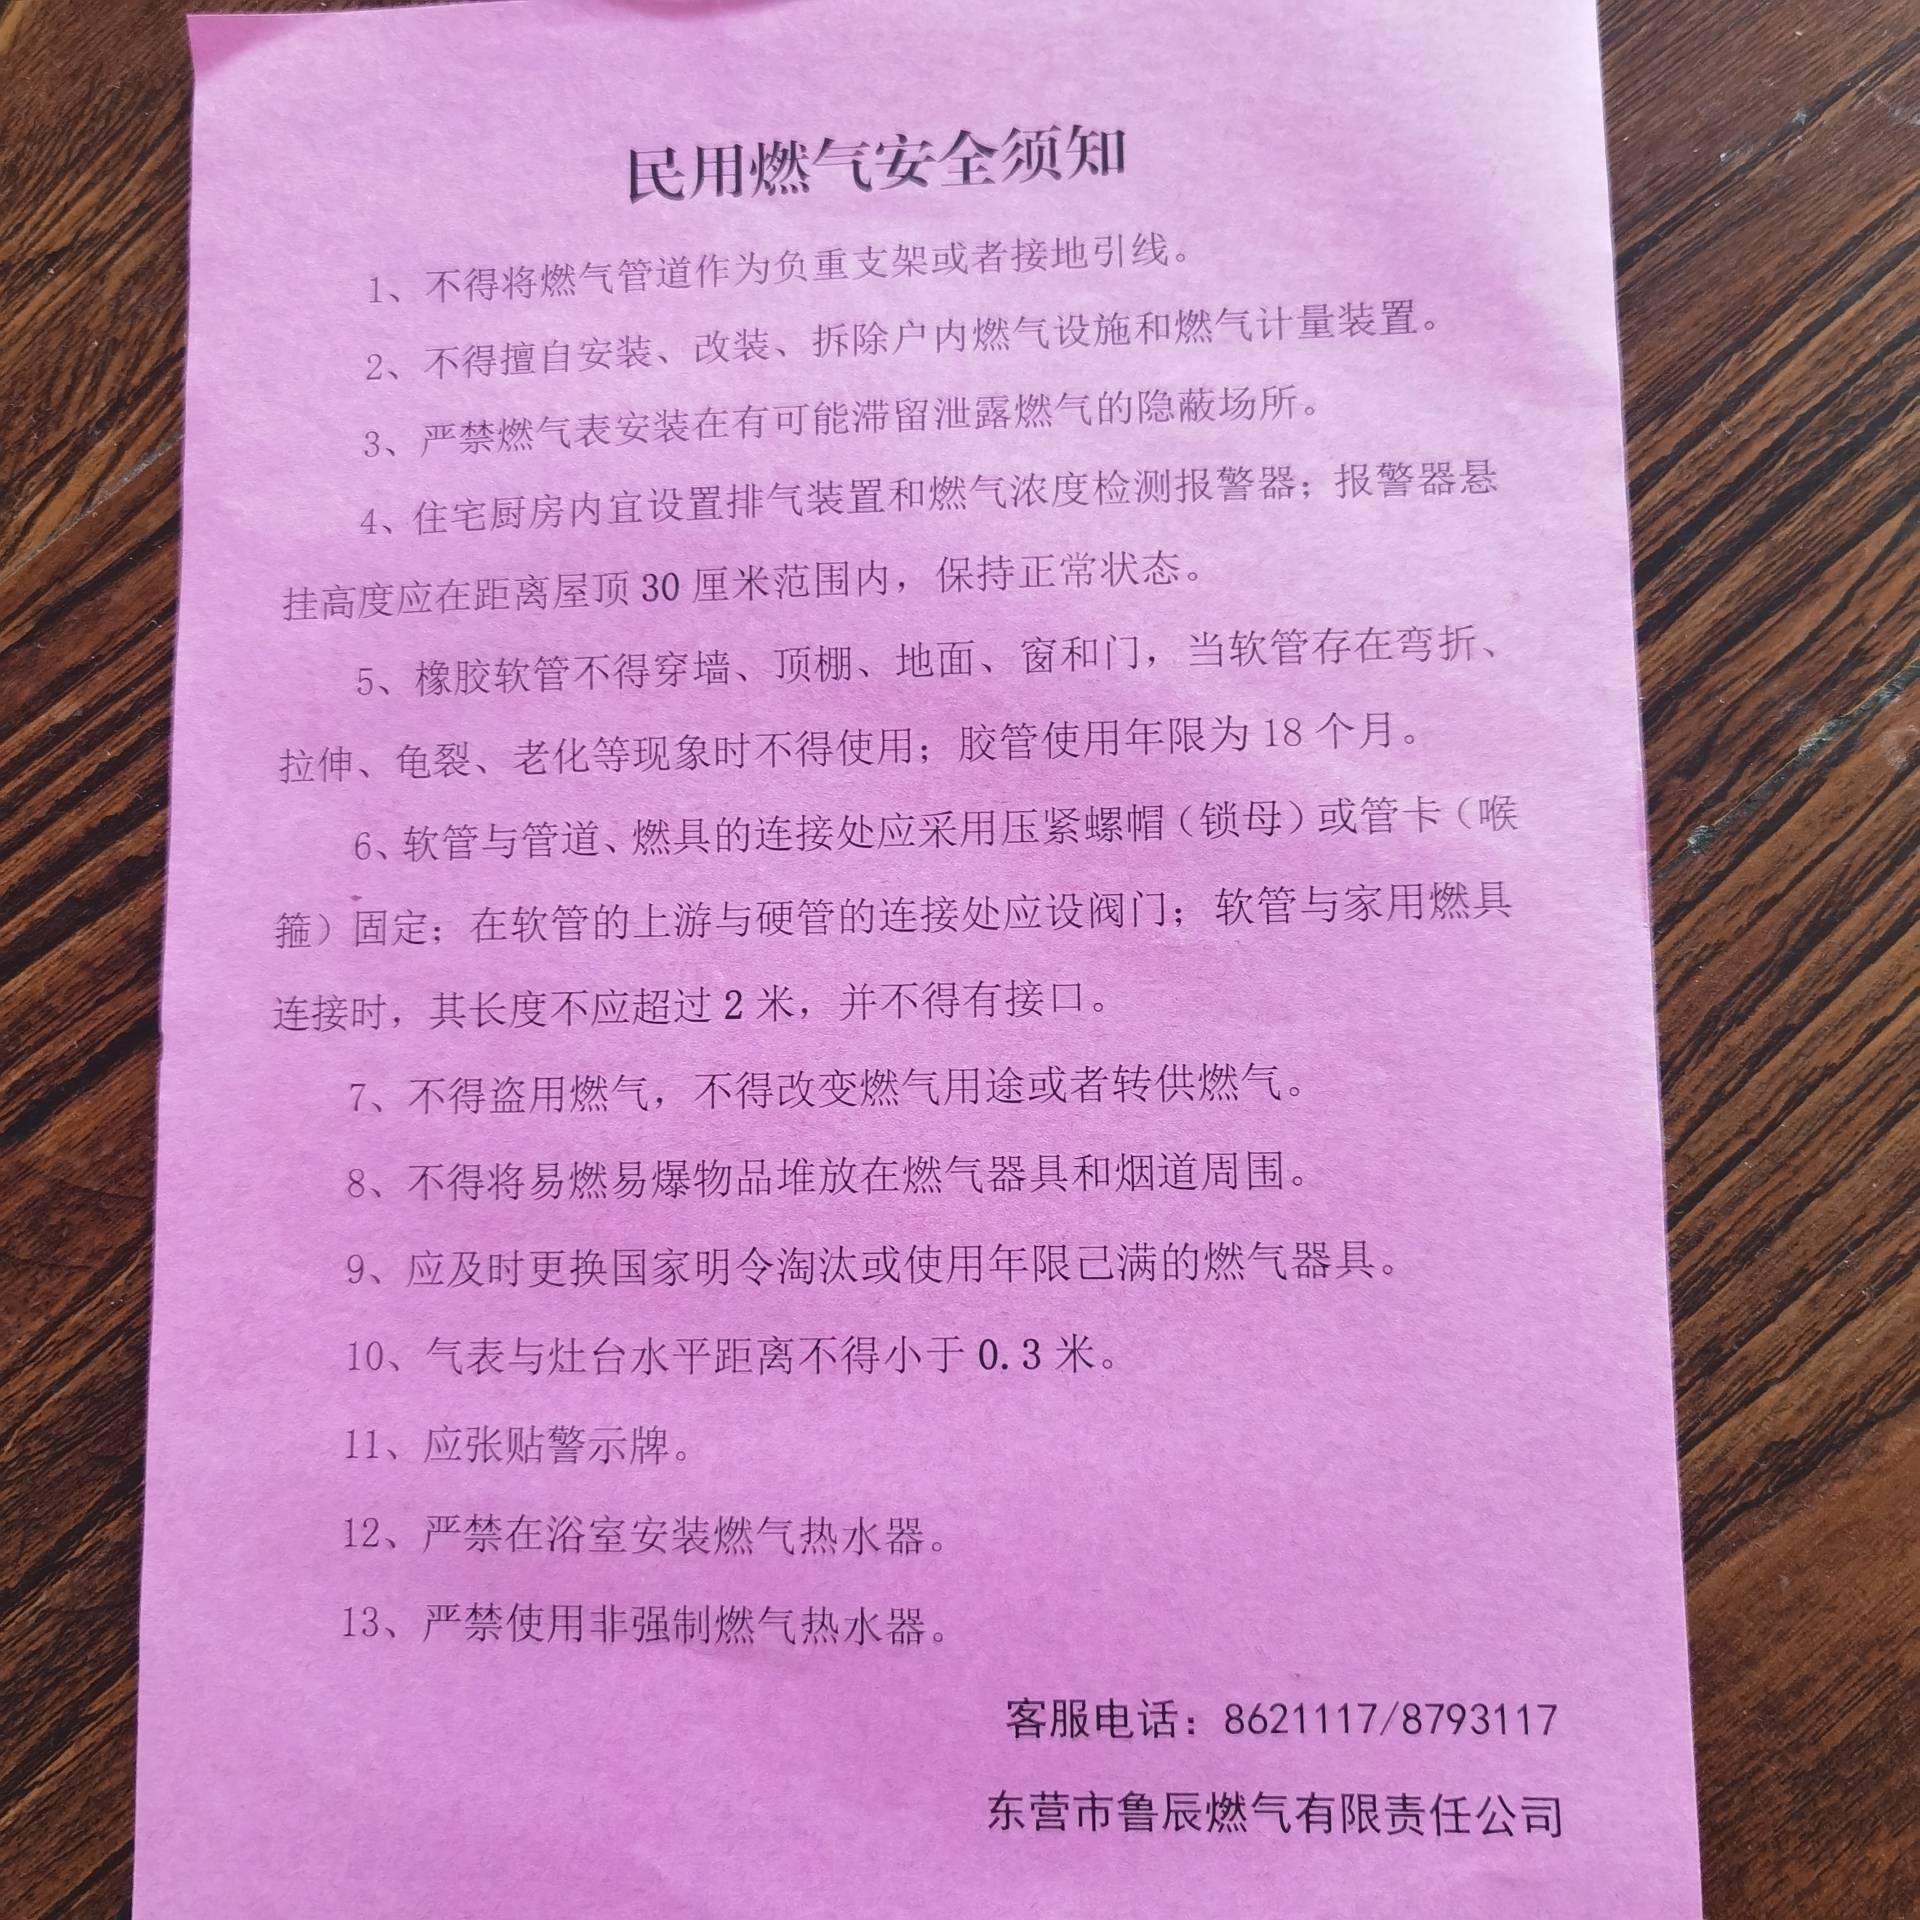 民用燃气安全须知
1、不得将燃气管道作为负重支架或者接地引线。
2、不得擅自安装、改装、拆除户内燃气设施和燃气计量装置。
3、严禁燃气表安装在有可能滞留泄露燃气的隐蔽场所。
4、住宅厨房内宜设置排气装置和燃气浓度检测报警器；报警器悬
挂高度应在距离屋顶 30 厘米范围内，保持正常状态。
5、橡胶软管不得穿墙、顶棚、地面、窗和门，当软管存在弯折、
拉伸、龟裂、老化等现象时不得使用；胶管使用年限为 18 个月。
6、软管与管道、燃具的连接处应采用压紧螺帽（锁母）或管卡（喉
箍）固定；在软管的上游与硬管的连接处应设阀门；软管与家用燃具
连接时，其长度不应超过 2 米，并不得有接口。
7、不得盗用燃气，不得改变燃气用途或者转供燃气。
8、不得将易燃易爆物品堆放在燃气器具和烟道周围。
9、应及时更换国家明令淘汰或使用年限己满的燃气器具。
10、气表与灶台水平距离不得小于 0.3 米。
11、应张贴警示牌。
12、严禁在浴室安装燃气热水器。
13、严禁使用非强制燃气热水器。
客服电话：8621117/8793117
东营市鲁辰燃气有限责任公司